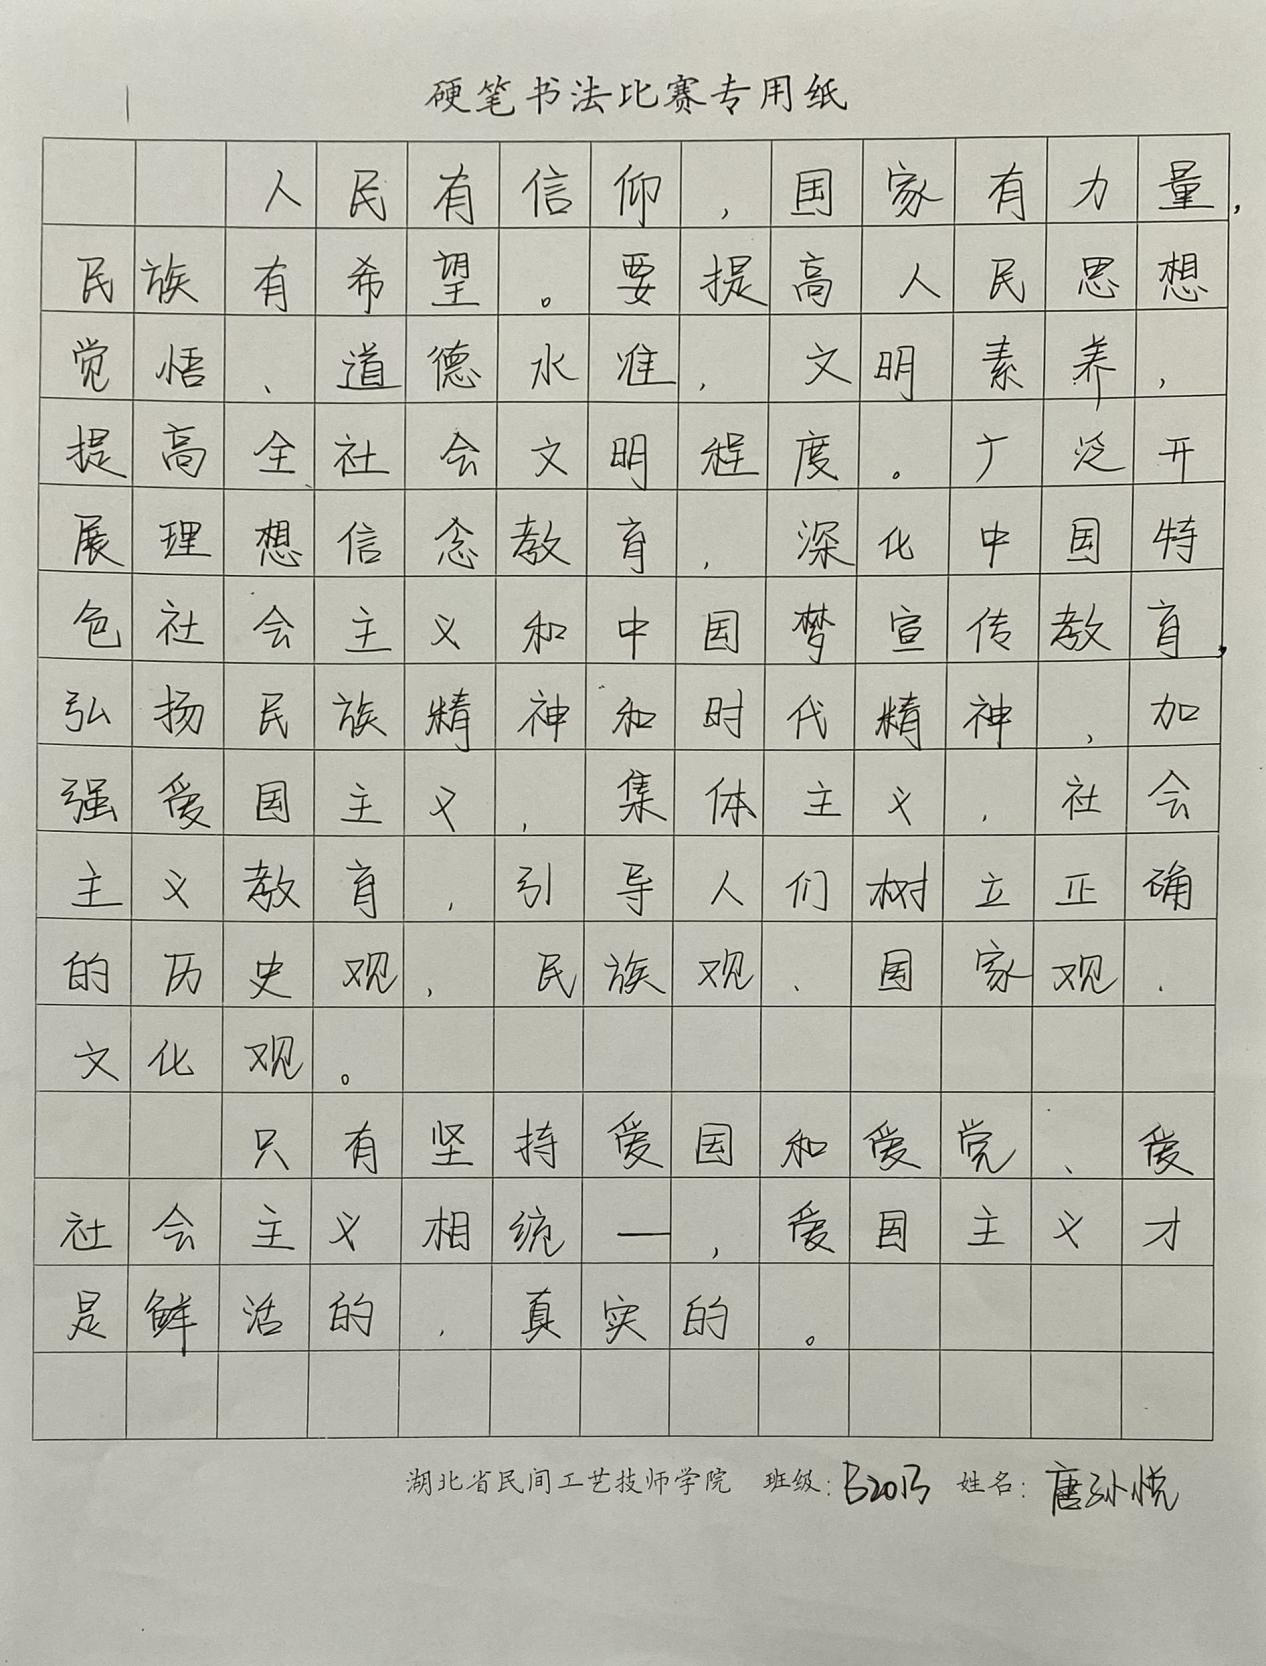 硬笔书法比赛专用纸
人民有信仰,国家有力量,
民族有希望。要提高人民思想
觉悟、道德水准,文明素养,
提高全社会文明程度。广泛开
展理想信念教育,深化中国特
色社会主义和中国梦宣传教育,
弘扬民族精神和时代精神,加
强爱国主义,集体主义,社会
主义教育,引导人们树立正确
的历史观,民族观、国家观、
文化观。
只有坚持爱国和爱党、爱
社会主义相统一,爱国主义才
是鲜活的,真实的。
湖北省民间工艺技师学院 班级: 姓名:唐孙悦